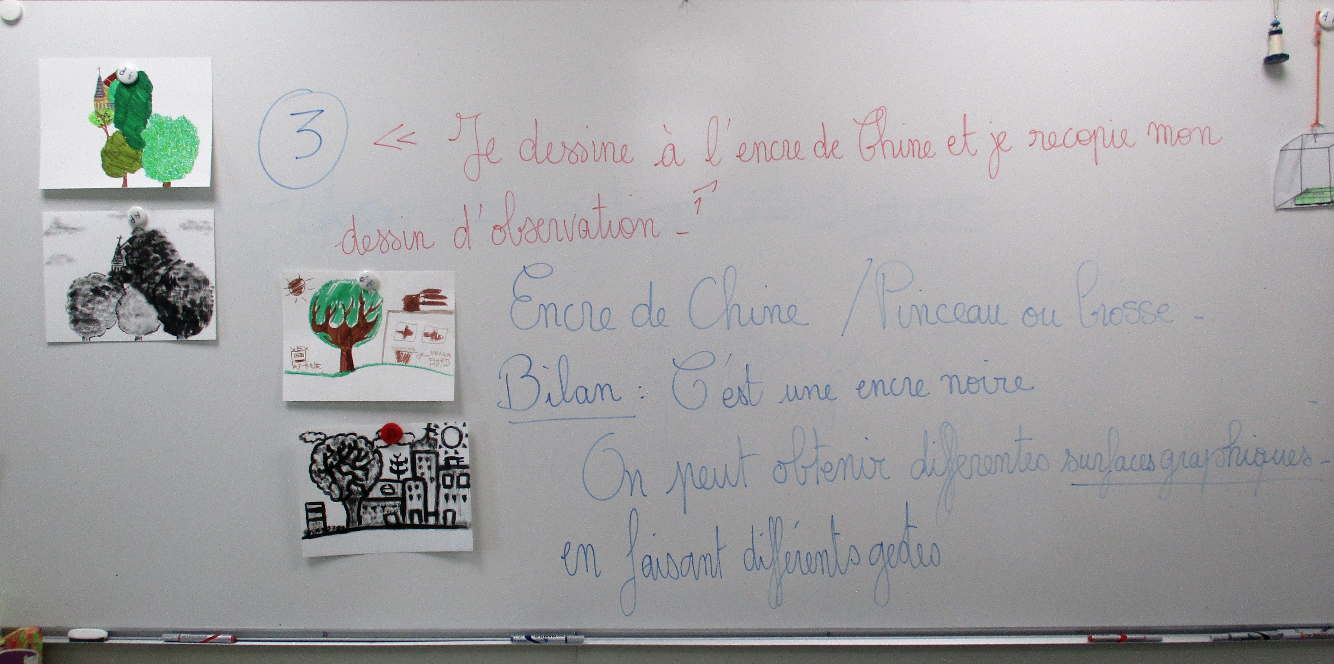 3 « Je dessine à l'encre de Chine et je recopie mon
dessin d'observation - »
Encre de Chine / Pinceau ou brosse -
Bilan : C'est une encre noire
On peut obtenir differentes surfaces graphiques -
en faisant différents gestes